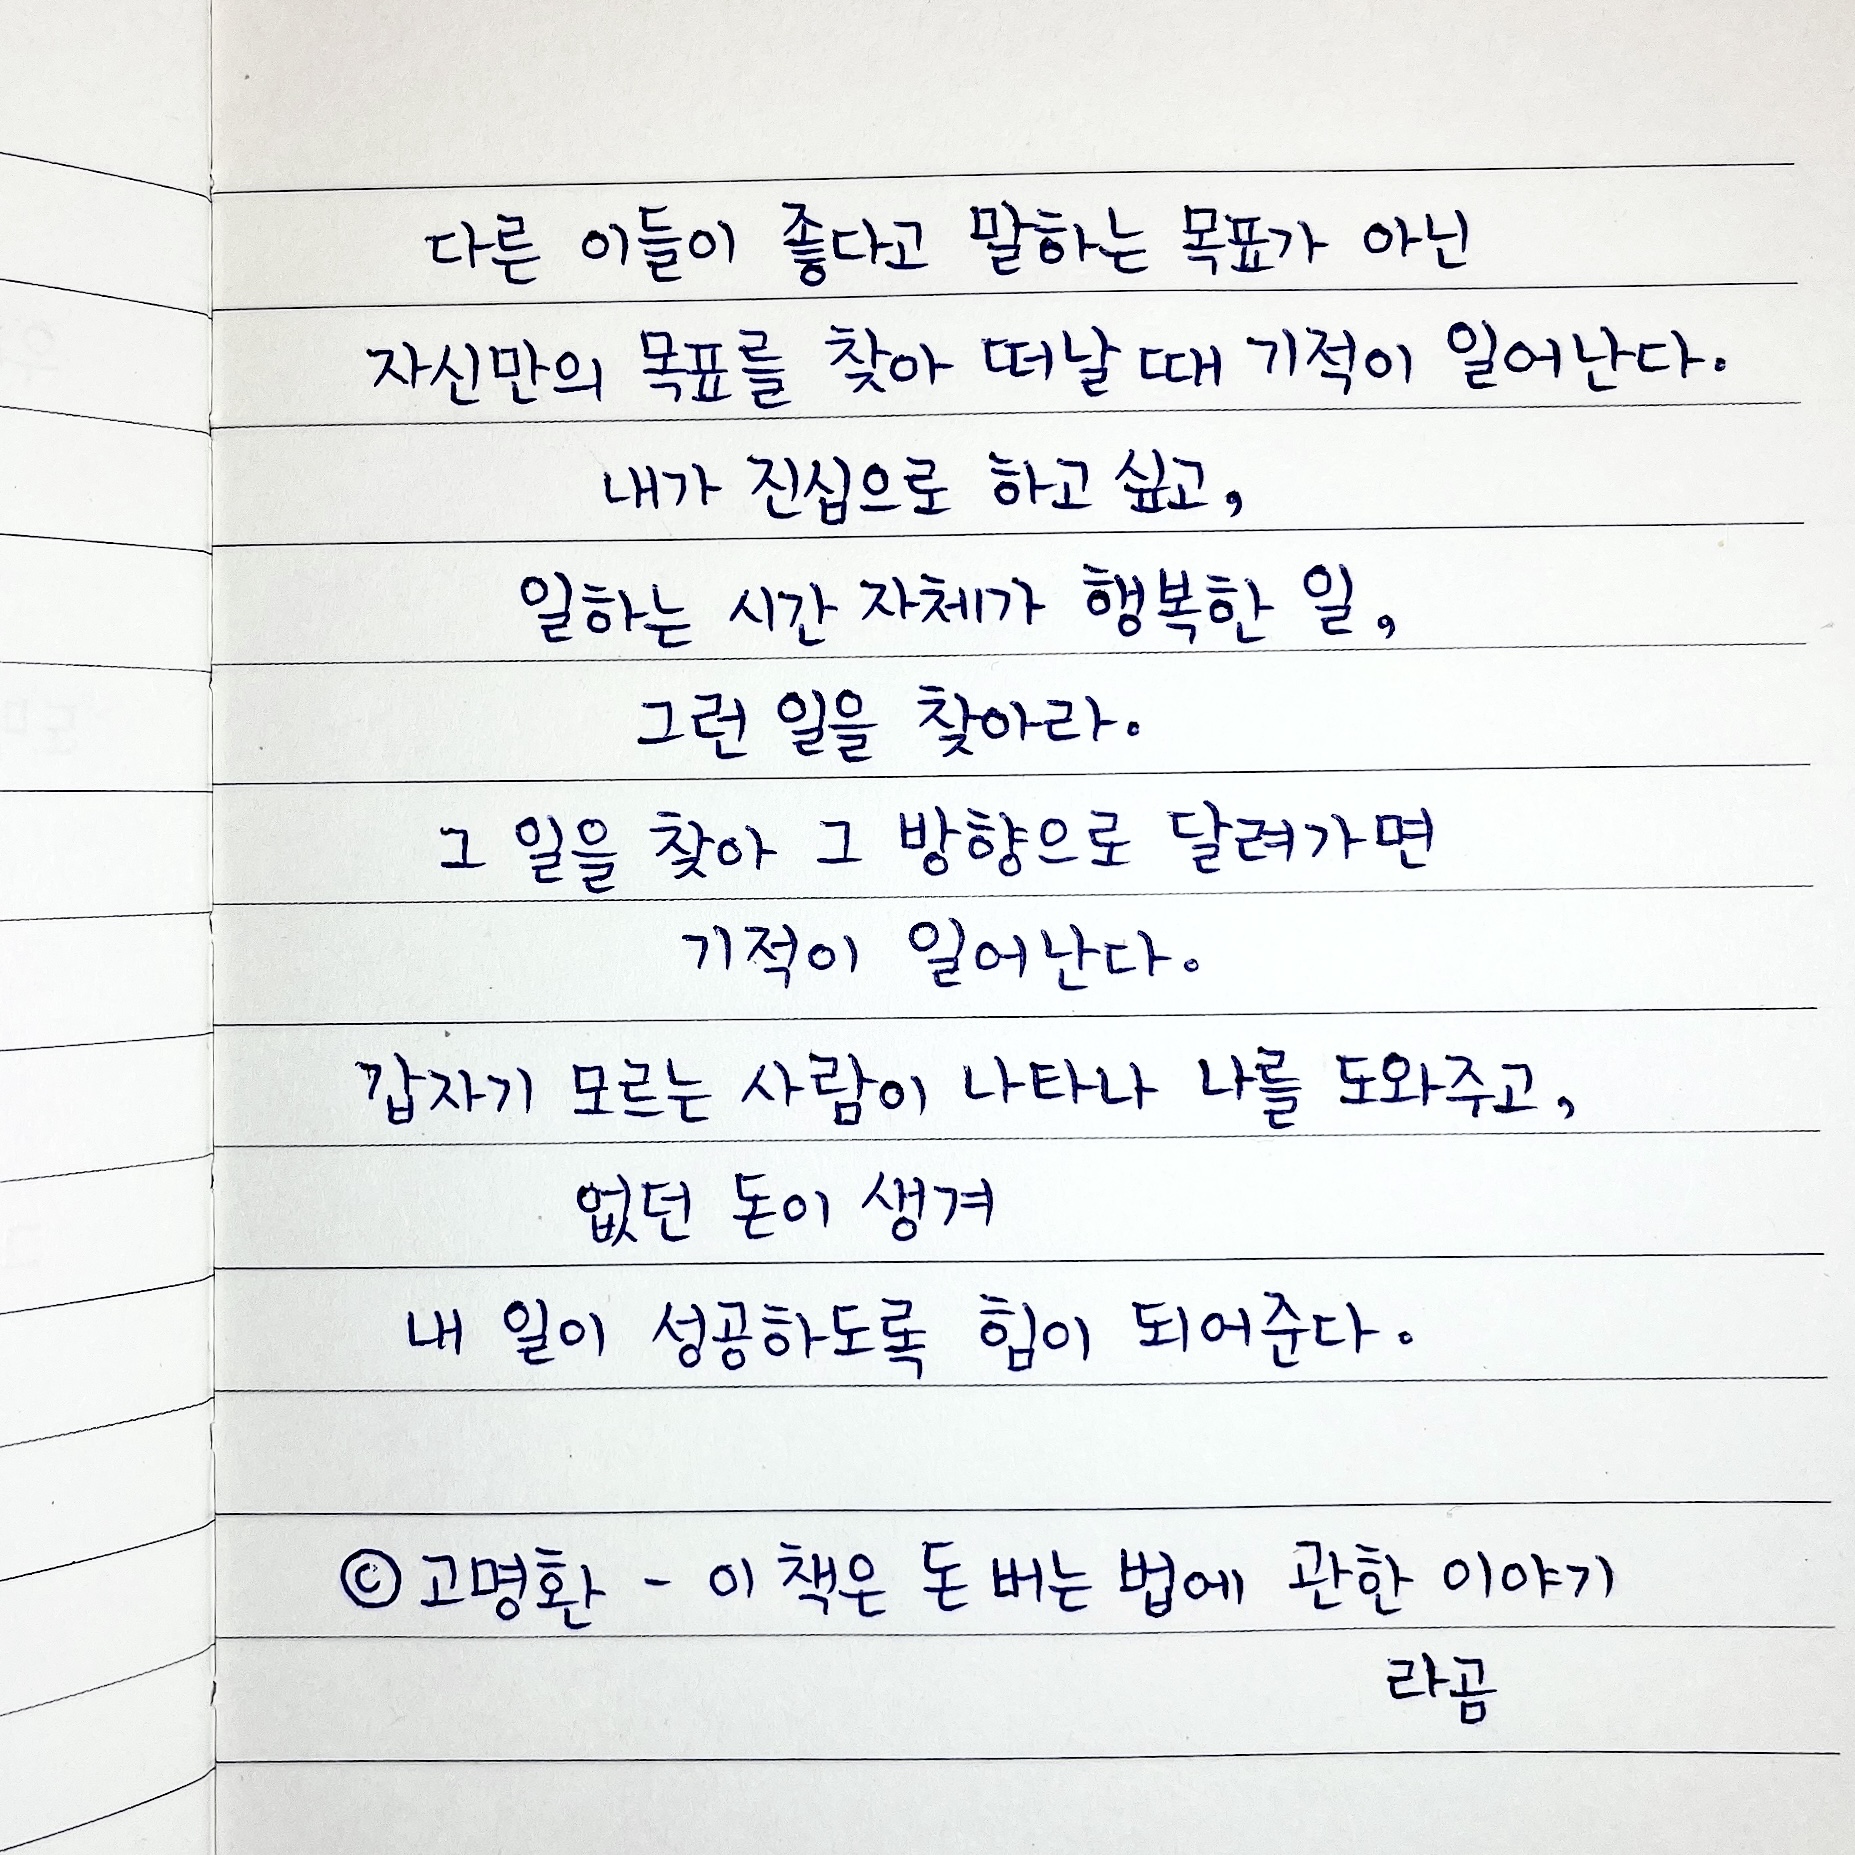 다른 이들이 좋다고 말하는 목표가 아닌
자신만의 목표를 찾아 떠날 때 기적이 일어난다.
내가 진심으로 하고 싶고,
일하는 시간 자체가 행복한 일,
그런 일을 찾아라.
그 일을 찾아 그 방향으로 달려가면
기적이 일어난다.
갑자기 모르는 사람이 나타나 나를 도와주고,
없던 돈이 생겨
내 일이 성공하도록 힘이 되어준다.
©고명환 - 이 책은 돈 버는 법에 관한 이야기
라곰